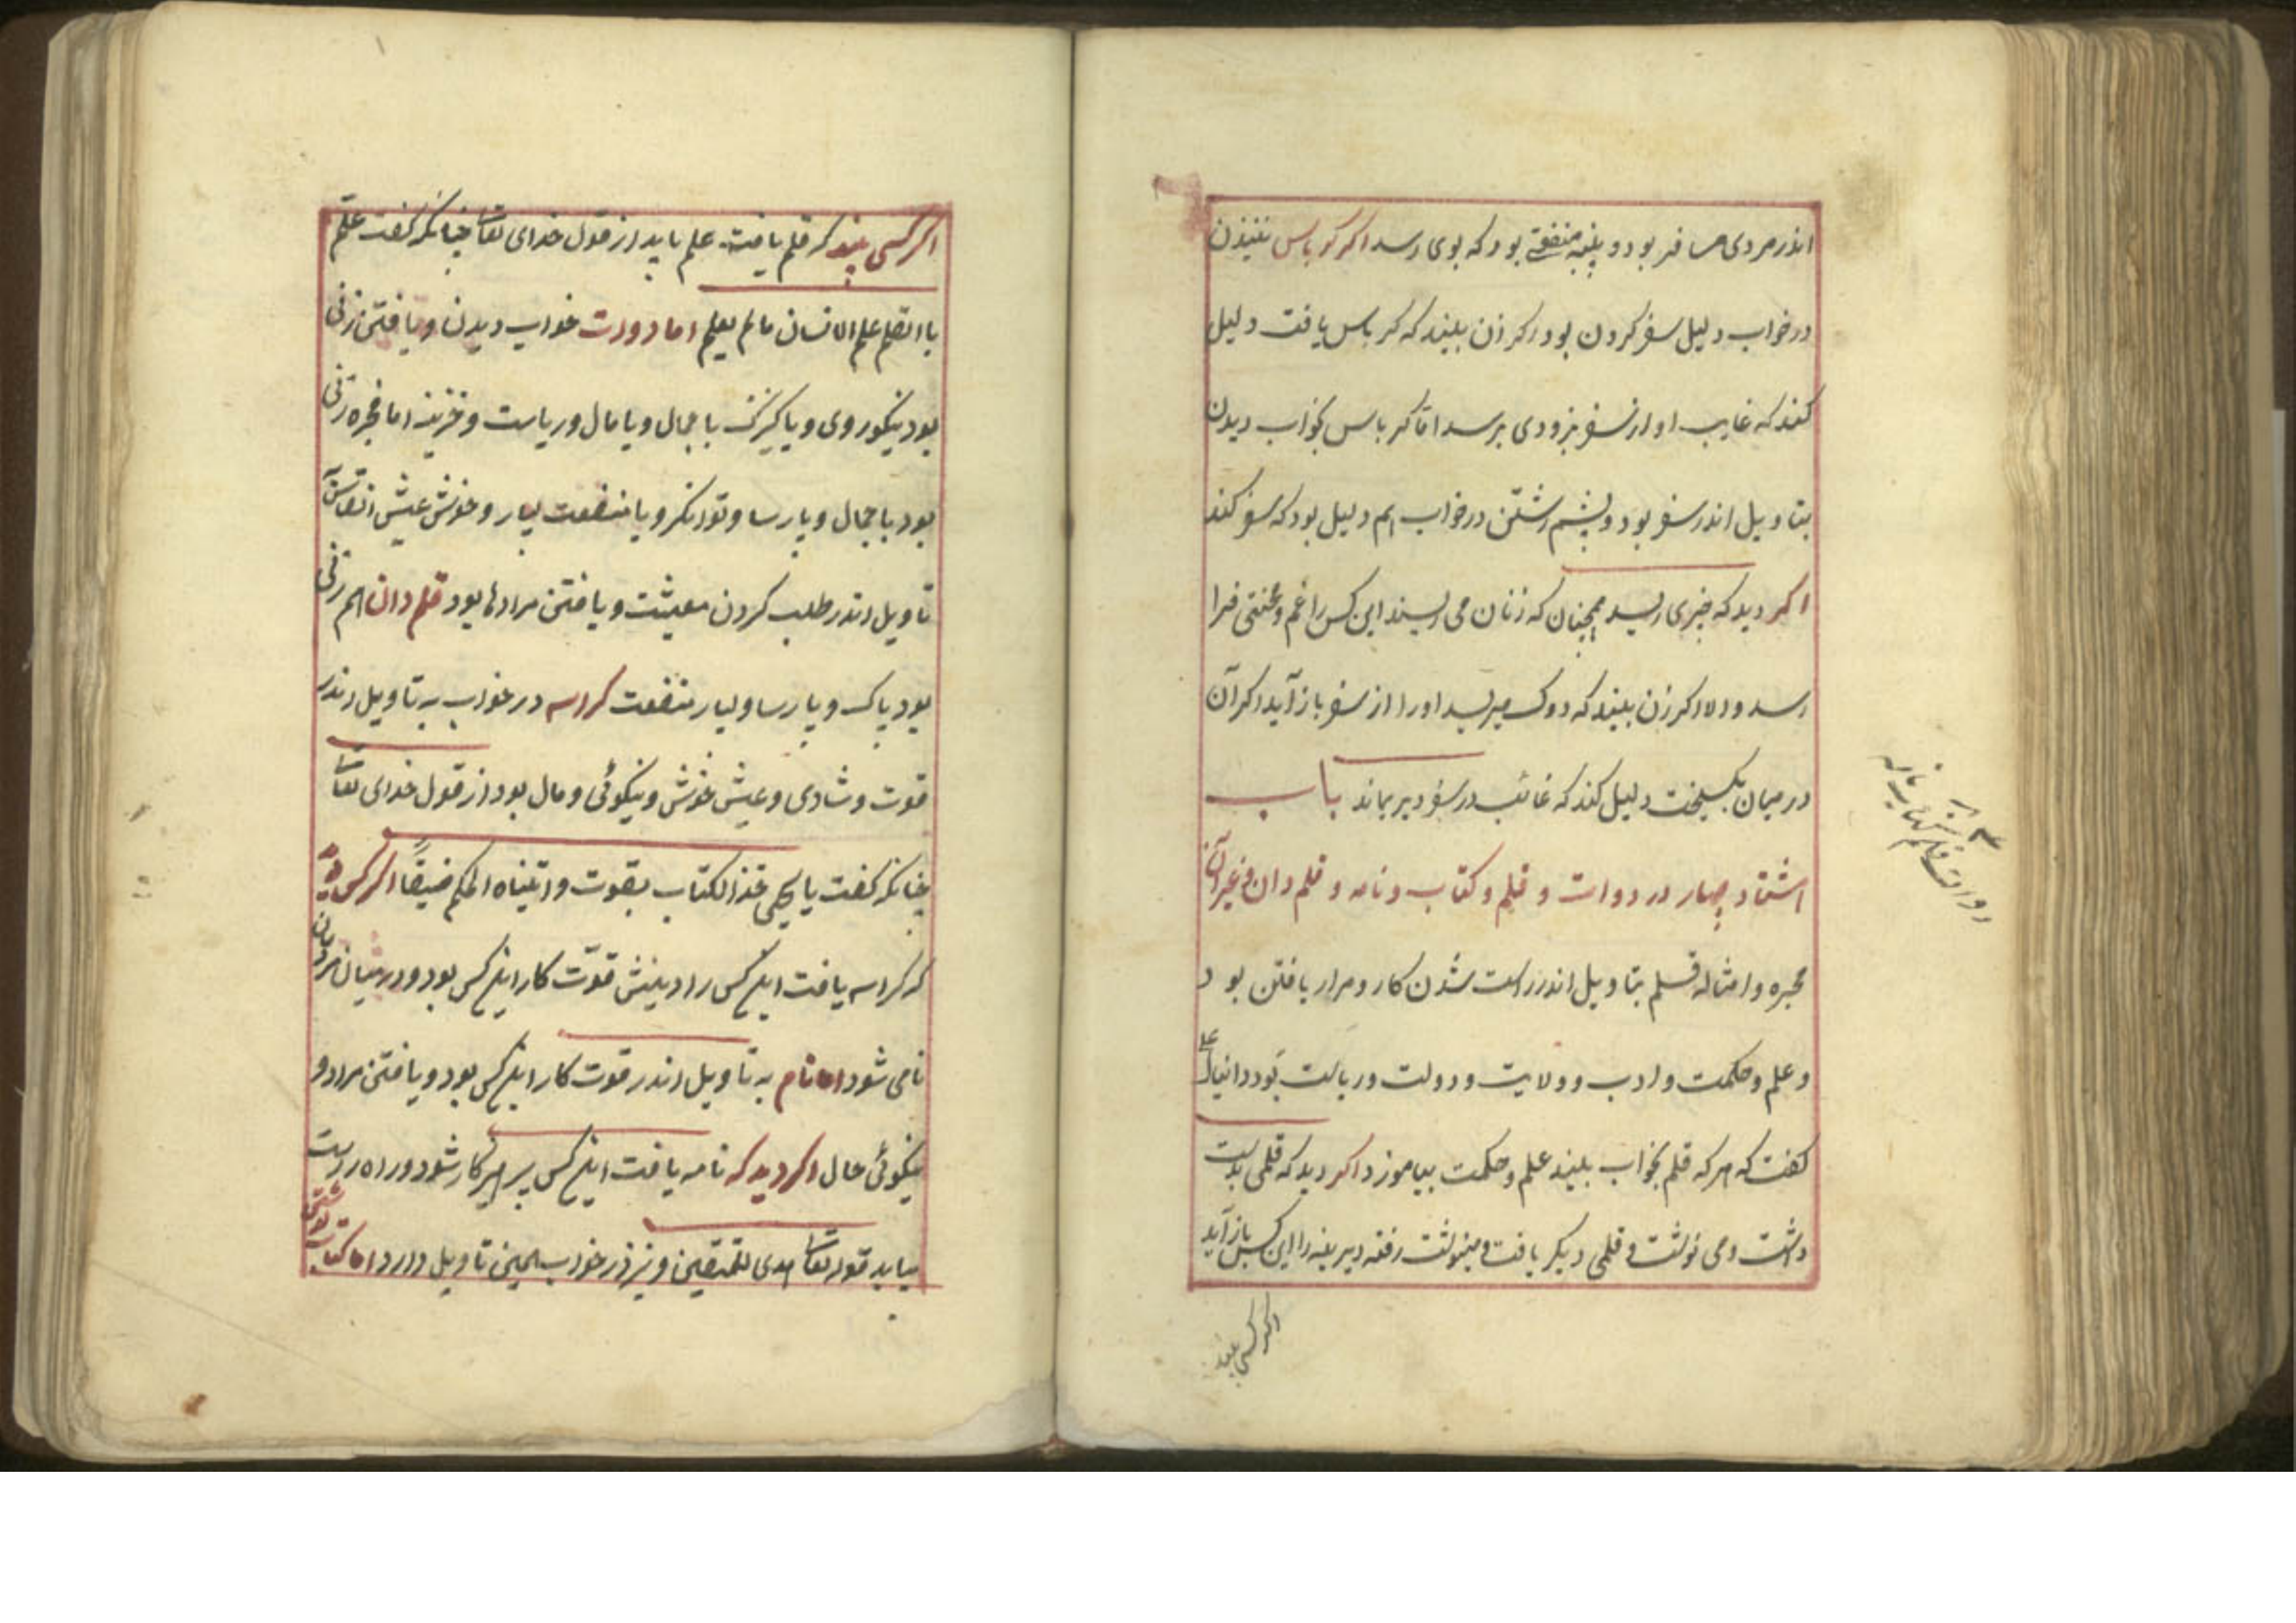 اندر مردی مسافر بود و پنبه منفعتی بود که بوی رسد اکر کرباس تنیدن
در خواب دلیل سفر کردن بود اکر زن بیند که کرباس یافت دلیل
کند که غایب او از سفر بزودی برسد اما کرباس بخواب دیدن
بتاویل اندر سفر بود و پشم رشتن در خواب هم دلیل بود که سفر کند
اکر دید که چیزی ریسد همچنان که زنان می ریسند این کس را غم و محنتی فرا
رسد والا اکر زن بیند که دوک میریسد او را از سفر باز آید اکر آن
در میان بکسیخت دلیل کند که غائب در سفر دیر بماند باب
اشتاد چهار در دوات و قلم و کتاب و نامه و قلم دان و غیر آن
محبره و امثاله قلم بتاویل اندر راست شدن کار و مراد یافتن بود
و علم و حکمت و ادب و ولایت و دولت و ریاست بود دانیال ع
کفت که هر که قلم بخواب بیند علم و حکمت بیاموزد اکر دید که قلمی بدست
داشت و می نوشت و قلمی دیکر یافت و مینوشت رفته دیرینه را این کس باز آید
اکر کسی بیند
دوات قلم کتاب نامه
اکر کسی بیند که قلم یافت علم یابد از قول خدای تعالی چنانکه کفت علم
باالقلم علم الانسان مالم یعلم اما دوات خواب دیدن و یافتن زنی
بود نیکوروی و یا کنیزک با جمال و یا مال و ریاست و خزینه اما محبره زنی
بود با جمال و پارسا و توانکر و با منفعت بسیار و خوش عیش
تاویل اندر طلب کردن معیشت و یافتن مرادها بود قلم دان هم زنی
بود پاک و پارسا و بسیار منفعت کراسه در خواب به تاویل اندر
قوت و شادی و عیش خوش و نیکوئی و مال بود از قول خدای تعالی
چنانکه کفت یا یحیی خذالکتاب بقوت و اتیناه الحکم صبیاً اکر کس دید
که کراسه یافت اینکس را دینش قوّت کار اینکس بود و در میان مردمان
نامی شود اما نام به تاویل اندر قوت کار اینکس بود و یافتن مراد و
نیکوئی حال اکر دید که نامه یافت اینکس پرهیزکار شود و راه راست
بیابد قوله تعالی هدی للمتقین و نیز در خواب همین تاویل دارد اما کتاب نوشتن